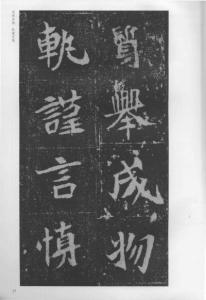 舉成物
軌謹言慎